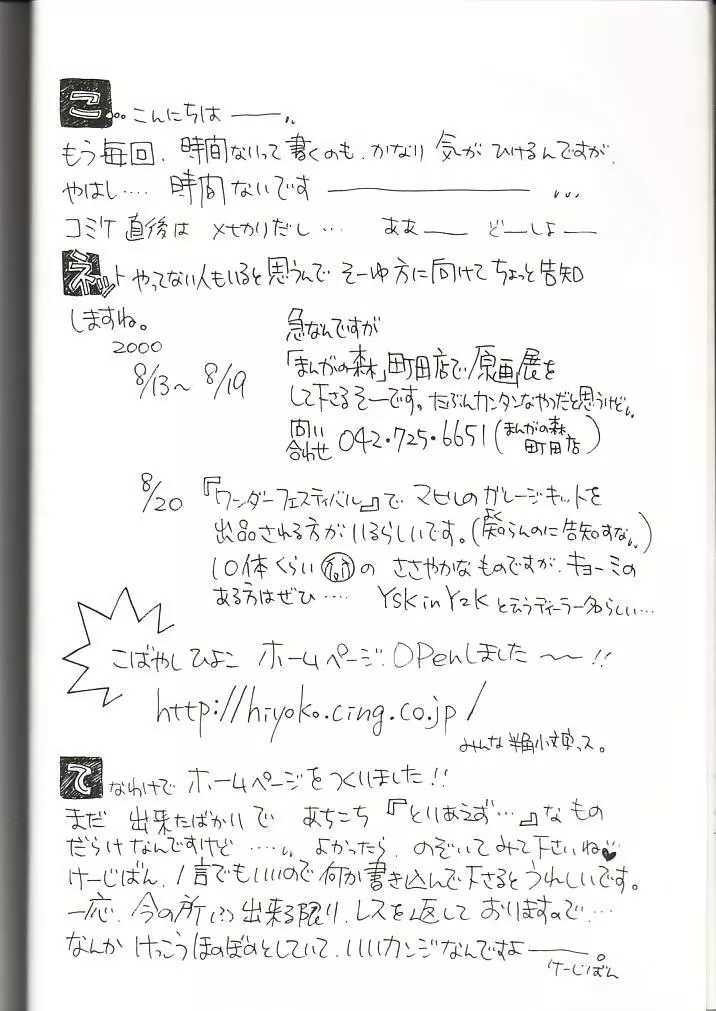 こ… こんにちは ――‥
もう毎回、時間ないって書くのも、かなり気がひけるんですが、
やはし‥‥ 時間ないです ―――――― …
コミケ直後は 〆切りだし… ああ―― ど―しよ――
ネット やってない人もいると思うんで そーゆ方に向けてちょっと告知
しますね。
2000
8/13〜8/19
急なんですが
「まんがの森」町田店で「原画」展を
して下さるそーです。たぶんカンタンなやつだと思うけど‥
問い合わせ 042・725・6651(まんがの森 町田店)
8/20 『ワンダーフェスティバル』で マヒルのガレージキットを
出品される方がいるらしいです。(よく知らんのに告知すな‥)
10体くらいの ささやかなものですが、キョーミの
ある方はぜひ‥‥ YSK in Y2K と云うディーラー名らしい…
こばやしひよこ ホームページ OPenしました 〜〜!!
http://hiyoko.cing.co.jp/
みんな半角小文字っス。
て なわけで ホームページをつくりました!!
まだ 出来たばかりで あちこち 『とりあえず…』なもの
だらけなんですけど ‥‥‥ よかったら、のぞいてみて下さいね♥
けーじばん、1言でもいいので何か書き込んで下さるとうれしいです。
一応、今の所は出来る限り、レスを返しておりますので、…
なんか けっこうほのぼのとしていて、いいカンジなんですよ――。
けーじばん